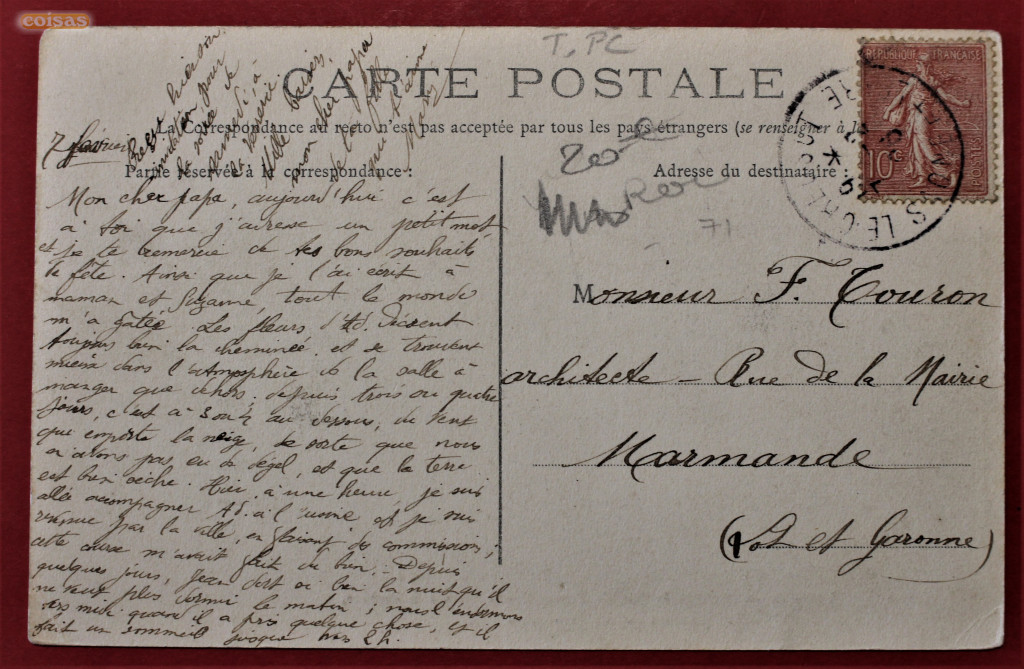 coisas
T, PC
CARTE POSTALE
La Correspondance au recto n'est pas acceptée par tous les pays étrangers (se renseigner à la
Partie réservée à la correspondance :
Adresse du destinataire :
RÉPUBLIQUE FRANÇAISE
10c
7
Reçu hier soir
invitation pour
la soirée de
samedi à
la
Mille baisers,
mon cher papa
de ta fille
qui t'aime
Mon cher papa, aujourd'hui c'est
à toi que j'adresse un petit mot
et je te remercie de tes bons souhaits
de fête. Ainsi que je l'ai écrit à
maman et Suzanne, tout le monde
m'a gâtée. Les fleurs d'Ad. décorent
toujours bien la cheminée, et se trouvent
mieux dans l'atmosphère de la salle à
manger que dehors. depuis trois ou quatre
jours, c'est à 3 ou 4 au dessous, un vent
qui emporte la neige, de sorte que nous
n'avons pas eu de dégel, et que la terre
est bien sèche. Hier, à une heure, je suis
allée accompagner Ad. à l'usine et je suis
revenue par la ville, en faisant des commissions;
cette course m'avait fait du bien. Depuis
quelques jours, Jean dort si bien la nuit qu'il
ne veut plus dormir le matin; nous l'endormons
vers midi quand il a pris quelque chose, et il
fait un sommeil jusque vers 2h.
71
Monsieur F. Touron
architecte – Rue de la Mairie
Marmande
(Lot et Garonne)